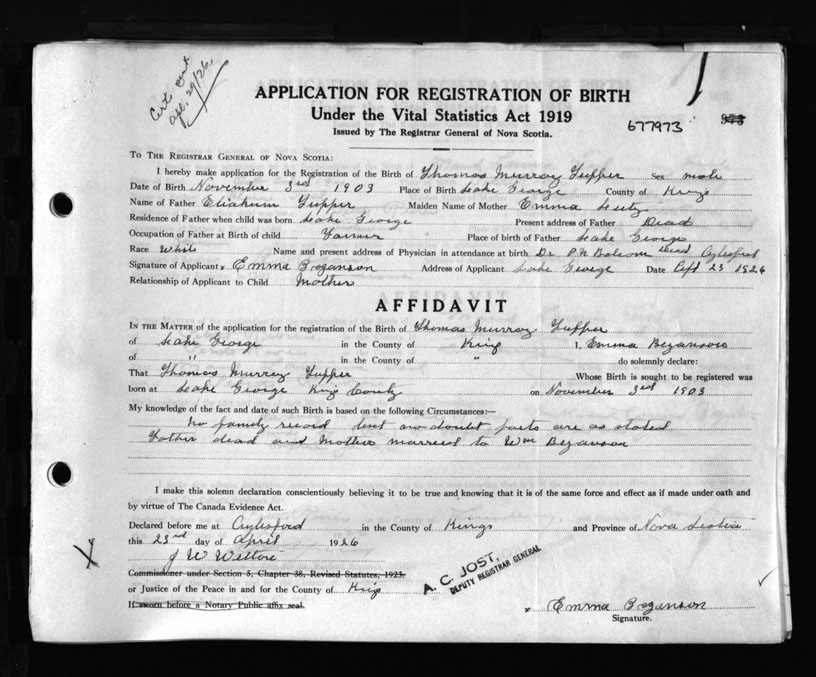 Cert. sent
Apl. 29/26
APPLICATION FOR REGISTRATION OF BIRTH
Under the Vital Statistics Act 1919
Issued by The Registrar General of Nova Scotia.
677973
TO THE REGISTRAR GENERAL OF NOVA SCOTIA:
I hereby make application for the Registration of the Birth of Thomas Murray Tupper Sex male
Date of Birth November 3rd 1903 Place of Birth Lake George County of Kings
Name of Father Eliakum Tupper Maiden Name of Mother Emma
Residence of Father when child was born Lake George Present address of Father Dead
Occupation of Father at Birth of child Farmer Place of birth of Father Lake George
Race White Name and present address of Physician in attendance at birth Dr. P.N. Balcom Dead Aylesford
Signature of Applicant x Emma Bezanson Address of Applicant Lake George Date 23 1926
Relationship of Applicant to Child Mother
AFFIDAVIT
IN THE MATTER of the application for the registration of the Birth of Thomas Murray Tupper
of Lake George in the County of King I, Emma Bezanson
of " in the County of " do solemnly declare:
That Thomas Murray Tupper Whose Birth is sought to be registered was
born at Lake George Kings County on November 3rd 1903
My knowledge of the fact and date of such Birth is based on the following Circumstances:—
No family record but no doubt facts are as stated
Father dead and Mother married to Wm Bezanson
I make this solemn declaration conscientiously believing it to be true and knowing that it is of the same force and effect as if made under oath and
by virtue of The Canada Evidence Act.
Declared before me at Aylesford in the County of Kings and Province of Nova Scotia
this 23rd day of April 1926
J W Welton
Commissioner under Section 5, Chapter 38, Revised Statutes, 1923.
or Justice of the Peace in and for the County of Kings
If sworn before a Notary Public affix seal.
A. C. JOST,
DEPUTY REGISTRAR GENERAL
x Emma Bezanson
Signature.